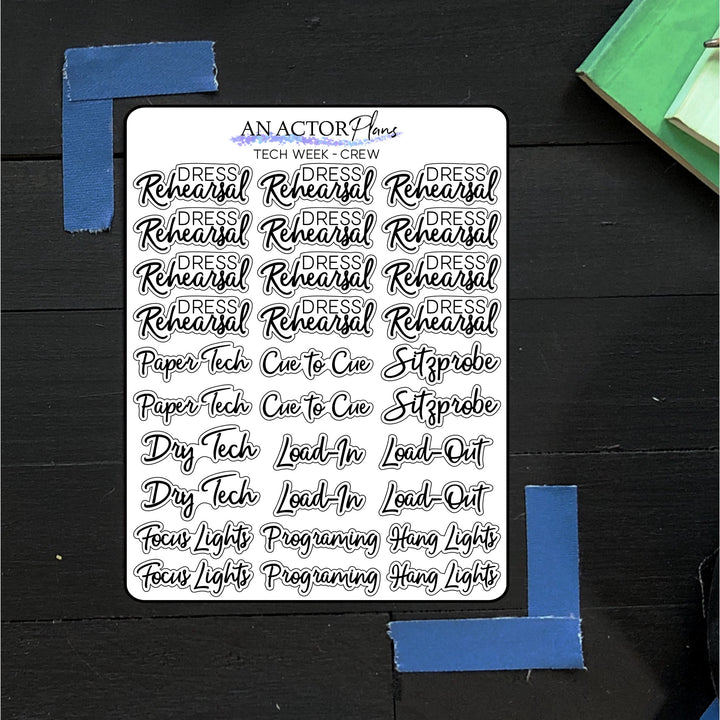 AN ACTOR Plans
TECH WEEK - CREW
DRESS Rehearsal DRESS Rehearsal DRESS Rehearsal
DRESS Rehearsal DRESS Rehearsal DRESS Rehearsal
DRESS Rehearsal DRESS Rehearsal DRESS Rehearsal
DRESS Rehearsal DRESS Rehearsal DRESS Rehearsal
Paper Tech Cue to Cue Sitzprobe
Paper Tech Cue to Cue Sitzprobe
Dry Tech Load-In Load-Out
Dry Tech Load-In Load-Out
Focus Lights Programing Hang Lights
Focus Lights Programing Hang Lights